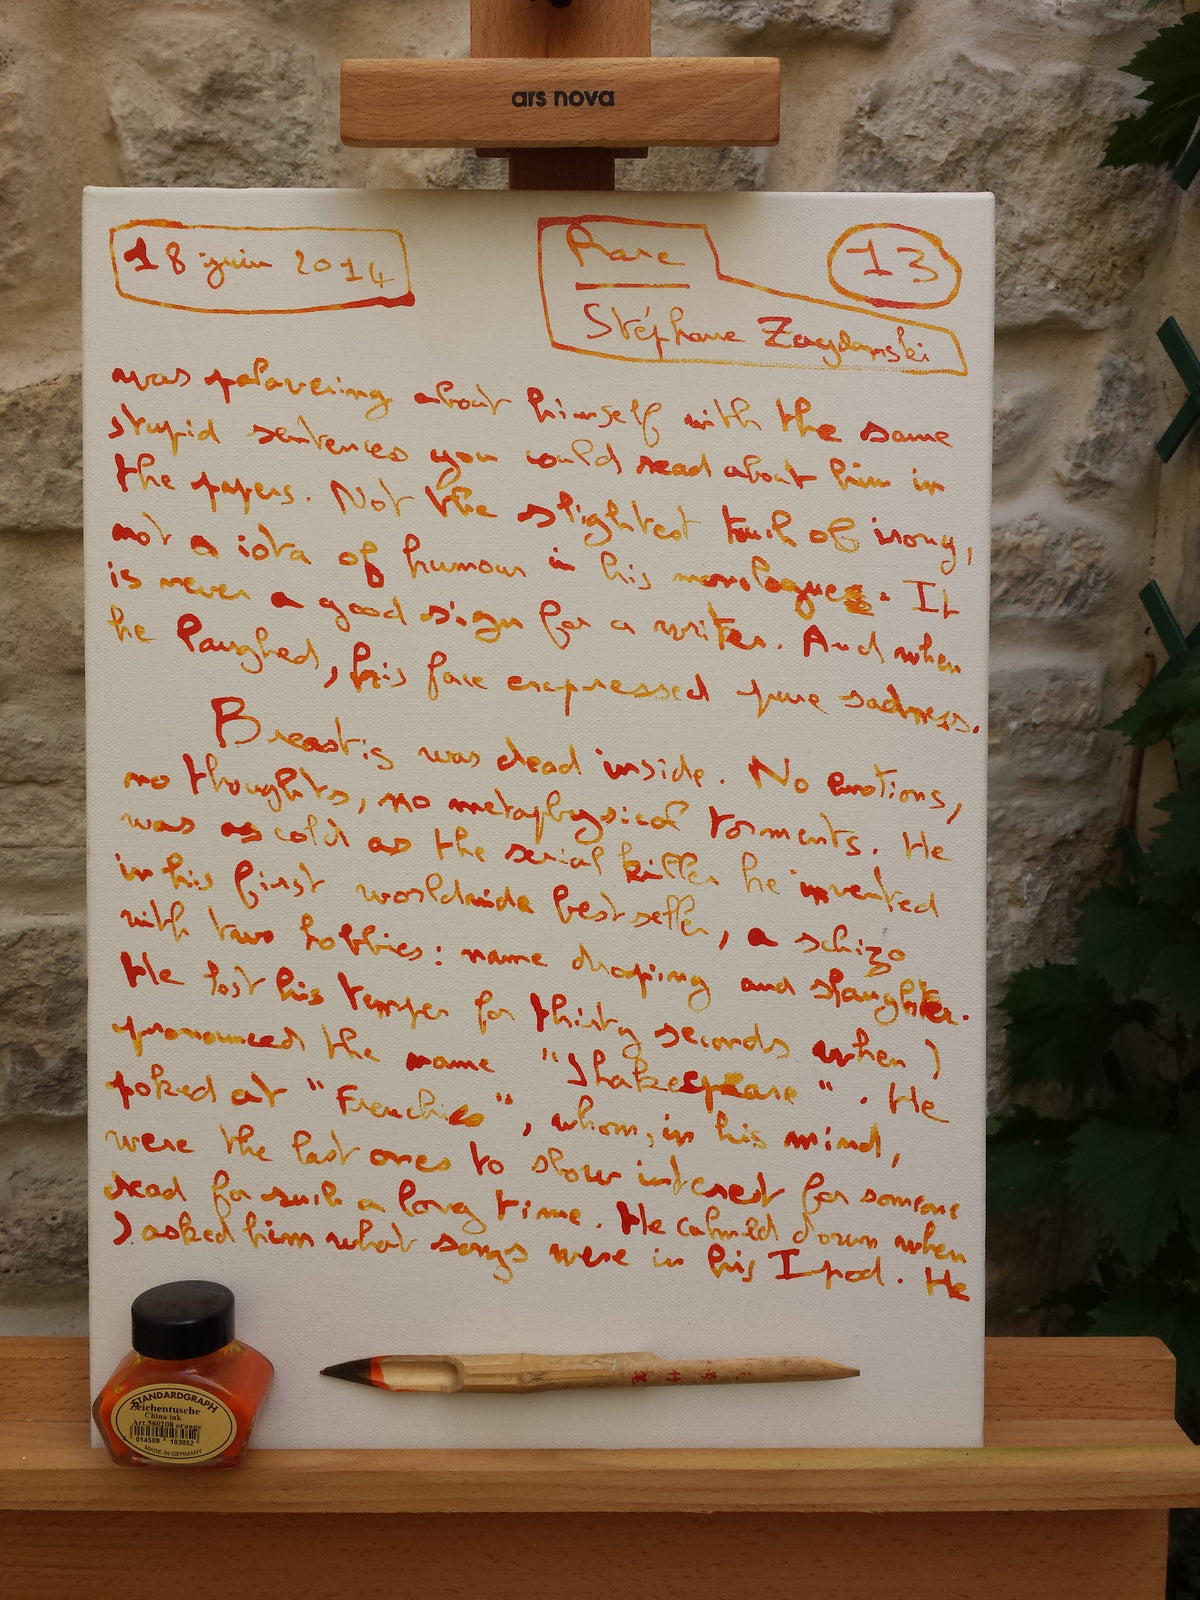 ars nova
18 juin 2014
Rare
13
Stéphane Zagdanski
was palavering about himself with the same
stupid sentences you could read about him in
the papers. Not the slightest touch of irony,
not a iota of humour in his monologues. It
is never a good sign for a writer. And when
he laughed, his face expressed pure sadness.
Breastis was dead inside. No emotions,
no thoughts, no metaphysical torments. He
was as cold as the serial killer he invented
in his first worldwide best seller, a schizo
with two hobbies: name droping and slaughter.
He lost his temper for thirty seconds when I
pronounced the name "Shakespeare". He
poked at "Frenchies", whom, in his mind,
were the last ones to show interest for someone
dead for such a long time. He calmed down when
I asked him what songs were in his Ipod. He
STANDARDGRAPH
Zeichentusche
China ink
Art. 560208 orange
014509 103052
MADE IN GERMANY